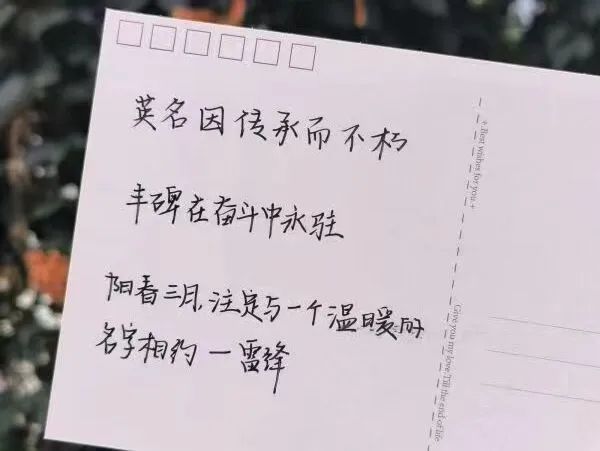 英名因传承而不朽
丰碑在奋斗中永驻
阳春三月,注定与一个温暖的
名字相约一雷锋
+ Best wishes for you +
Give you my love, Till the end of life